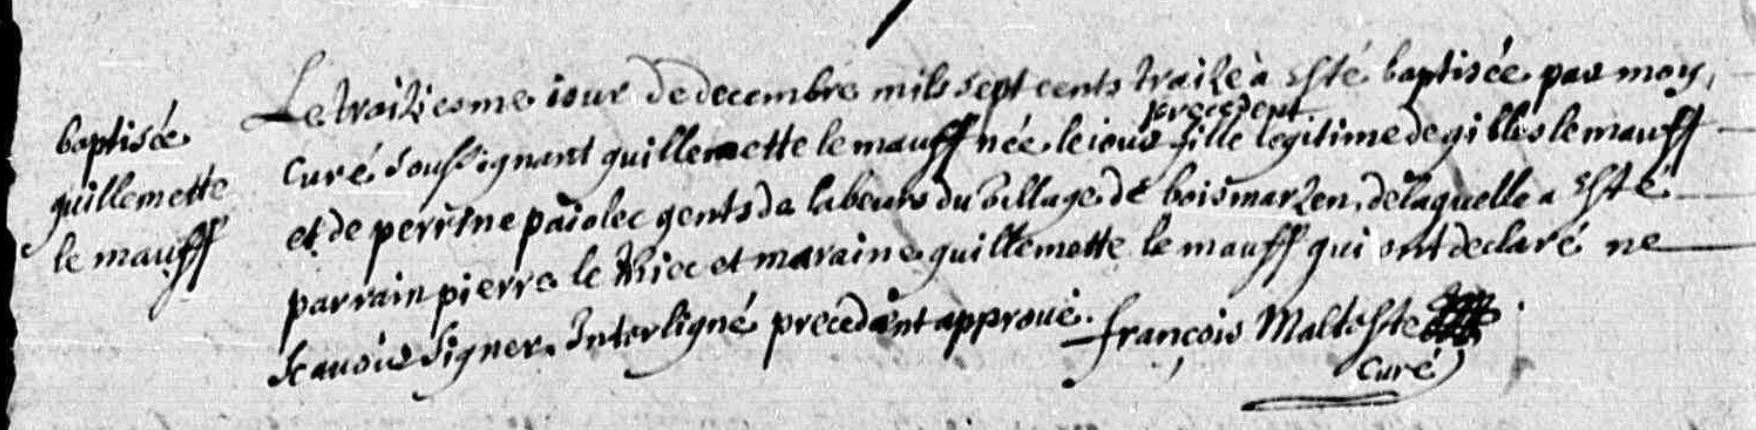 baptisée
guillemette
le mauff
Le traiziesme iour de decembre mil sept cents traize à esté baptisée par moy,
precedent
curé soussignant guillemette le mauff née le iour fille legitime de gilles le mauff
et de perrine paiolec gents de labeurs du village de boismarzen, de laquelle a esté
parrain pierre le et maraine guillemette le mauff qui ont declaré ne
scauoir signer. Interligné precedent approuué. françois Malteste
curé